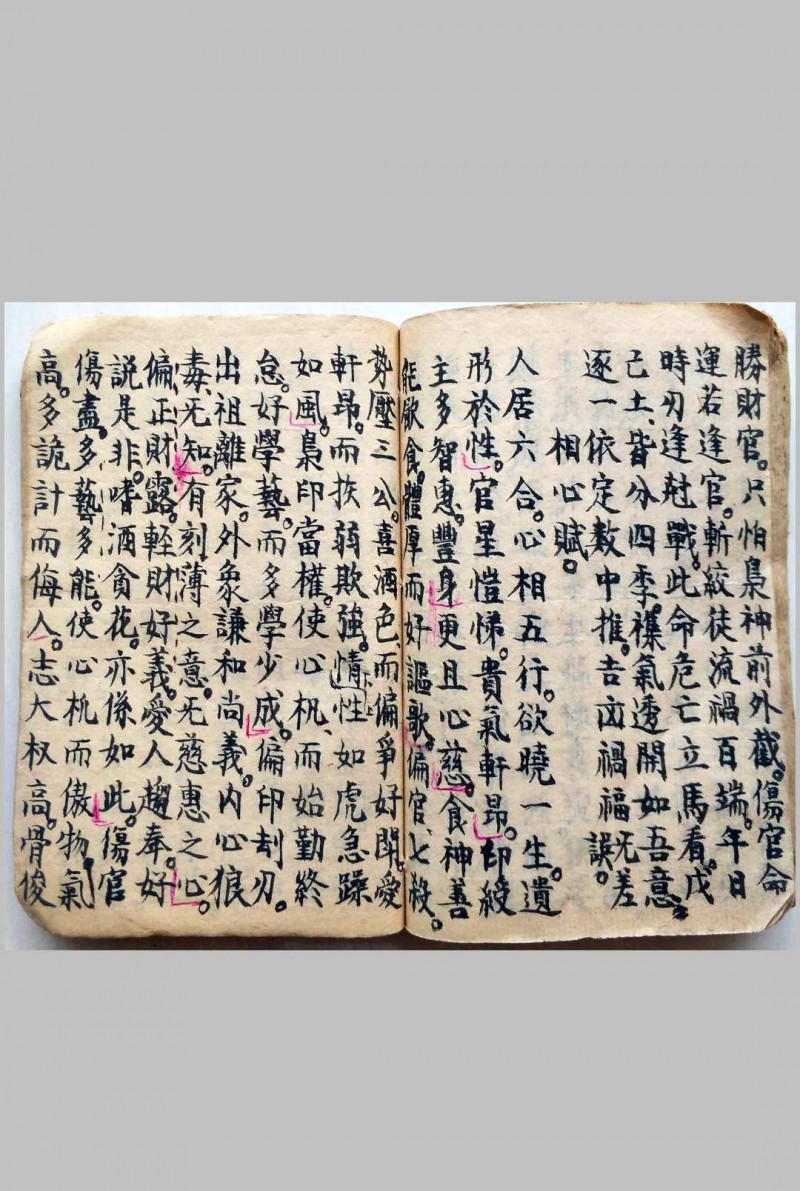 勝財官。只怕梟神前外截。傷官命
運若逢官。斬絞徒流禍百端。年日
時刃逢尅戰。此命危亡立馬看。戊
己土、皆分四季。襍氣透開如吾意。
逐一依定数中推。吉凶禍福旡差
誤。
相心賦。
人居六合。心相五行。欲曉一生。遺
形於性。官星愷悌。貴氣軒昂。印綬
主多智惠。豐身更且心慈。食神善
能飲食。體厚而好謳歌。偏官、七殺。
势壓三公。喜酒色而偏爭好閗。愛
軒昂。而扶弱欺強。情性如虎急躁
如風。梟印當權。使心机、而始勤終
怠。好學藝。而多學少成。偏印刦刃。
出祖離家。外象謙和尚義。内心狼
毒、旡知。有刻薄之意。旡慈惠之心。
偏正財露。輕財好義。愛人趨奉。好
説是非。嗜酒貪花。亦係如此。傷官
傷盡。多藝多能。使心机而傲物。氣
高。多詭計而侮人。志大权高。骨俊